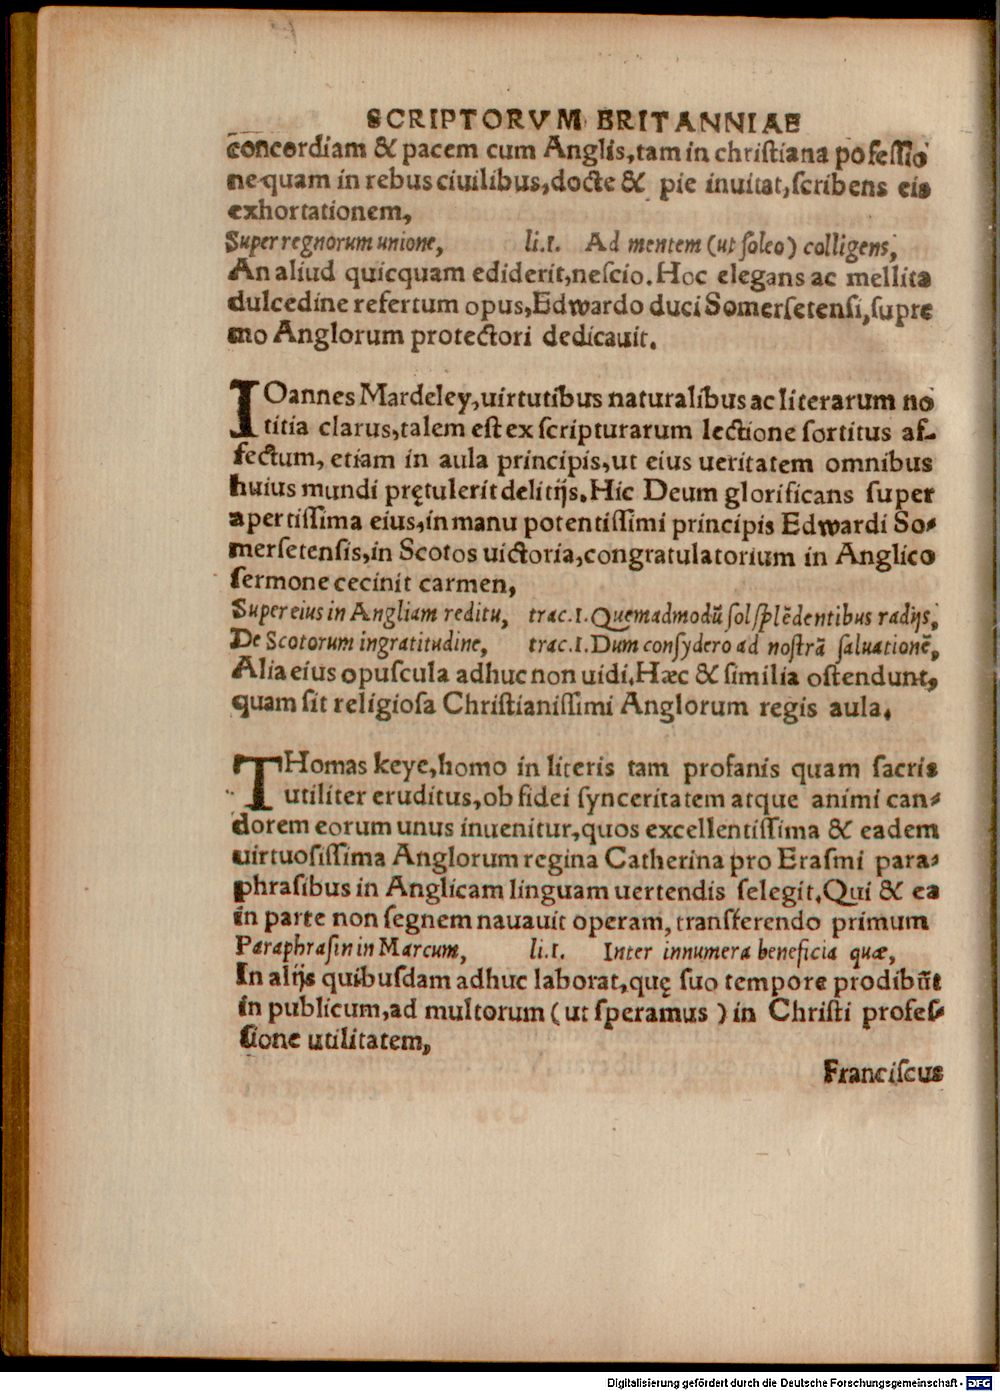 SCRIPTORVM BRITANNIAE
concordiam & pacem cum Anglis, tam in christiana pofeſſio
ne quam in rebus ciuilibus, docte & pie inuitat, ſcribens eis
exhortationem,
Super regnorum unione, li.1. Ad mentem (ut ſoleo) colligens,
An aliud quicquam ediderit, neſcio. Hoc elegans ac mellita
dulcedine refertum opus, Edwardo duci Somerſetenſi, ſupre
mo Anglorum protectori dedicauit.
IOannes Mardeley, uirtutibus naturalibus ac literarum no
titia clarus, talem eſt ex ſcripturarum lectione ſortitus af-
fectum, etiam in aula principis, ut eius ueritatem omnibus
huius mundi prętulerit delitijs. Hic Deum glorificans ſuper
apertiſſima eius, in manu potentiſſimi principis Edwardi So-
merſetenſis, in Scotos uictoria, congratulatorium in Anglico
ſermone cecinit carmen,
Super eius in Angliam reditu, trac.1. Quemadmodū ſol ſplēdentibus radijs,
De Scotorum ingratitudine, trac.1. Dum conſydero ad noſtrā ſaluationē,
Alia eius opuſcula adhuc non uidi. Hæc & ſimilia oſtendunt,
quam ſit religioſa Chriſtianiſſimi Anglorum regis aula.
THomas keye, homo in literis tam profanis quam ſacris
utiliter eruditus, ob fidei ſynceritatem atque animi can-
dorem eorum unus inuenitur, quos excellentiſſima & eadem
uirtuoſiſſima Anglorum regina Catherina pro Eraſmi para-
phraſibus in Anglicam linguam uertendis ſelegit. Qui & ea
in parte non ſegnem nauauit operam, tranſferendo primum
Paraphraſin in Marcum, li.1. Inter innumera beneficia quæ,
In alijs quibuſdam adhuc laborat, quę ſuo tempore prodibūt
in publicum, ad multorum (ut ſperamus) in Chriſti profeſ-
ſione utilitatem,
Franciſcus
Digitalisierung gefördert durch die Deutsche Forschungsgemeinschaft - DFG